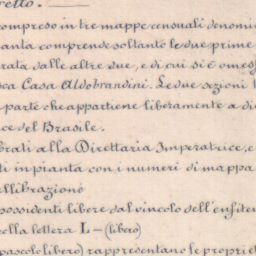 retto.
compreso in tre mappe censuali denomi
anta comprende soltanto le due prime
rata dalle altre due, e di cui si è omess
ca Casa Aldobrandini. Le due sezioni
parte che appartiene liberamente a di
ce del Brasile.
brati alla Direttaria Imperatrice, e
ti in pianta con i numeri di mappa
llibrazione
possidenti libere dal vincolo dell'enfiteu
ella lettera L-(libero)
pascolo libero) rappresentano le propriet